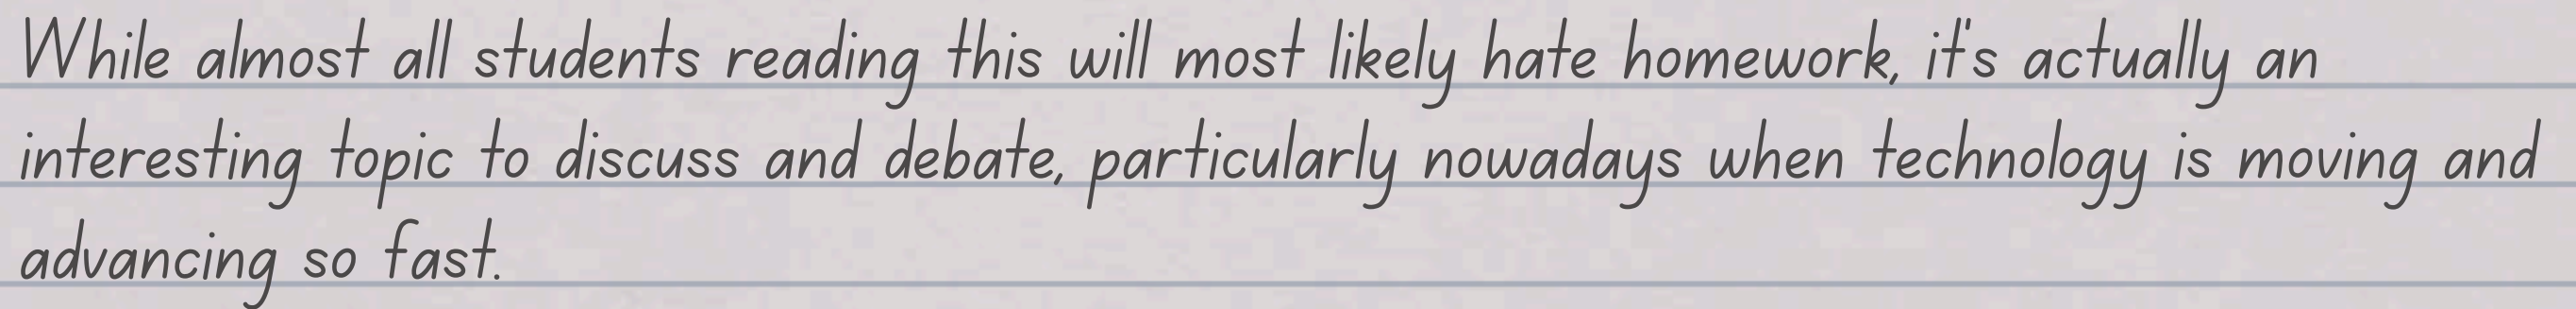 While almost all students reading this will most likely hate homework, it's actually an
interesting topic to discuss and debate, particularly nowadays when technology is moving and
advancing so fast.